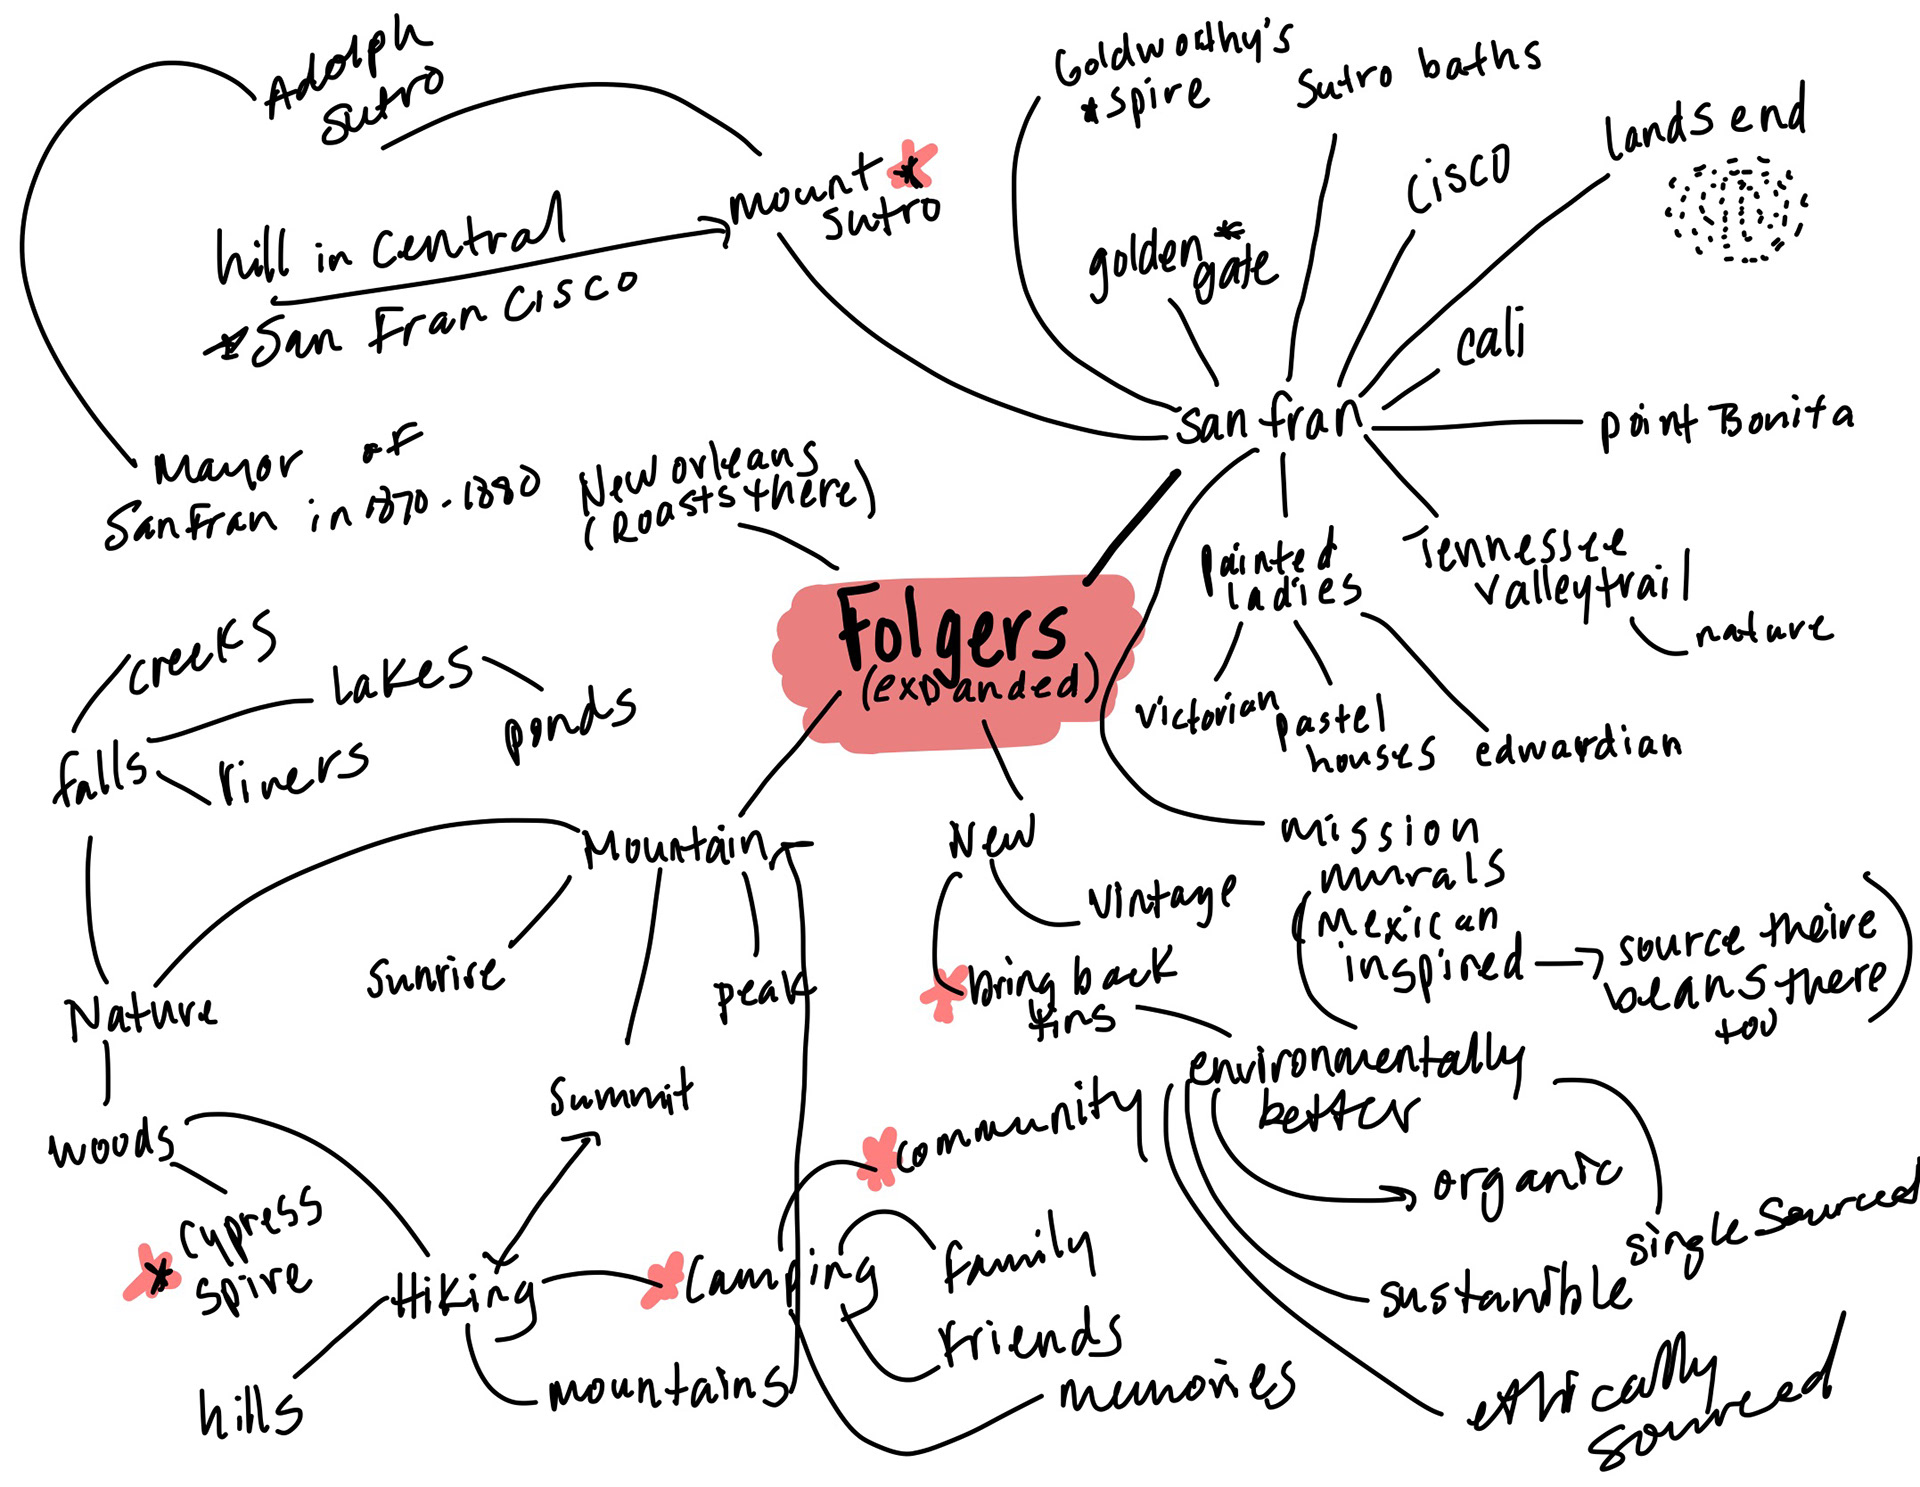 Adolph
Sutro
Goldworthy's
*spire
Sutro baths
lands end
cisco
mount *
sutro
hill in Central
*San Francisco
golden *
gate
cali
san fran
point Bonita
Mayor of
San Fran in 1870-1880
New orleans
(Roasts there)
Folgers
(expanded)
painted
ladies
Tennessee
valley trail
nature
victorian
pastel
houses
edwardian
creeks
lakes
ponds
falls
rivers
Mountain
New
vintage
mission
murals
(Mexican
inspired → source theire
beans there
too)
sunrise
peak
* bring back
tins
Nature
environmentally
better
summit
* community
woods
organic
cypress
* spire
single sourced
Hiking
* Camping
family
sustanible
friends
hills
mountains
memories
ethically
sourced